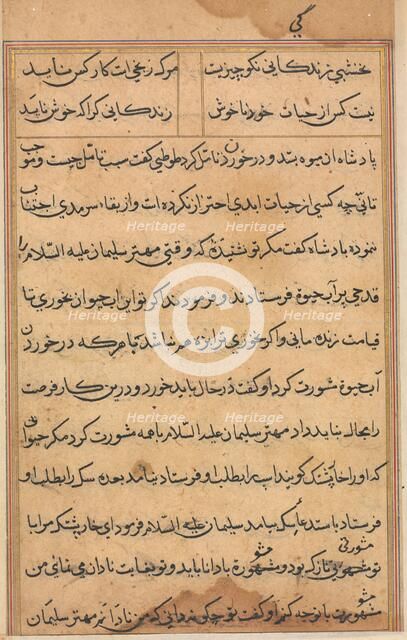 کی
نخشبی زندگانی نکو چیزیست مرگ کار کس ناید
نیست کس از حیات خود ناخوش زندگانی کرا که خوش ناید
پادشاه ان میوه بستد و در خوردن تامل کرد طوطی گفت سبب تامل چیست و موجب
تانی چه کسی از حیات ابدی احتراز نکرده است و از بقاء سرمدی اجتناب
ننموده پادشاه گفت مکر تو نشنیدهٔ که وقتی مهتر سلیمان علیه السلام را
قدحی پر آب حیوة فرستادند و فرمودند که تو این آب حیوان بخوری تا
قیامت زنده مانی و اگر نخوری ترا بزه هم نباشد هر که در خوردن
آب حیوة مشورت کرد او گفت در حال باید خورد و درین کار فرصت
را مجال نباید داد مهتر سلیمان علیه السلام با همه مشورت کرد مکر حیوانی
که او را خارپشتک گویند اسپ را بطلب او فرستاد نیامد بعده سک را بطلب او
فرستاد سک بیامد سلیمان علیه السلام فرمود ای خارپشتک مرا با
تو مشورتی نازک بود و مشورة با دانا باید و تو بغایت نادان می نمائی من
مشورت با تو چه کنم او گفت تو چگونه دانی که من نادانم مهتر سلیمان
Heritage
Heritage
Heritage
Heritage
Heritage
Heritage
Heritage
Heritage